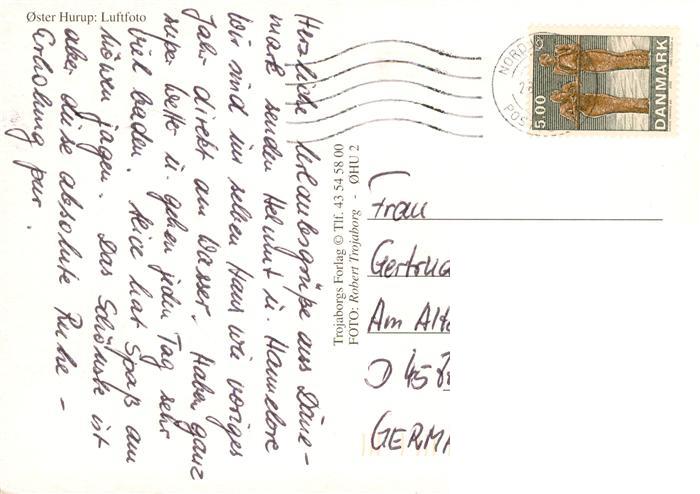 Øster Hurup: Luftfoto
Herzliche Urlaubsgrüße aus Däne-
mark senden Helmut u. Hannelore
Wir sind im selben Haus wie voriges
Jahr direkt am Wasser. Haben ganz
super Wetter u. gehen jeden Tag sehr
viel baden. Alice hat Spaß am
Möwen jagen. Das Schönste ist
aber diese absolute Ruhe –
Erholung pur.
Trojaborgs Forlag © Tlf. 43 54 58 00
FOTO: Robert Trojaborg - ØHU 2
NORDJ
POS
5.00
DANMARK
Frau
Gertru
Am Alt
D 458
GERMA